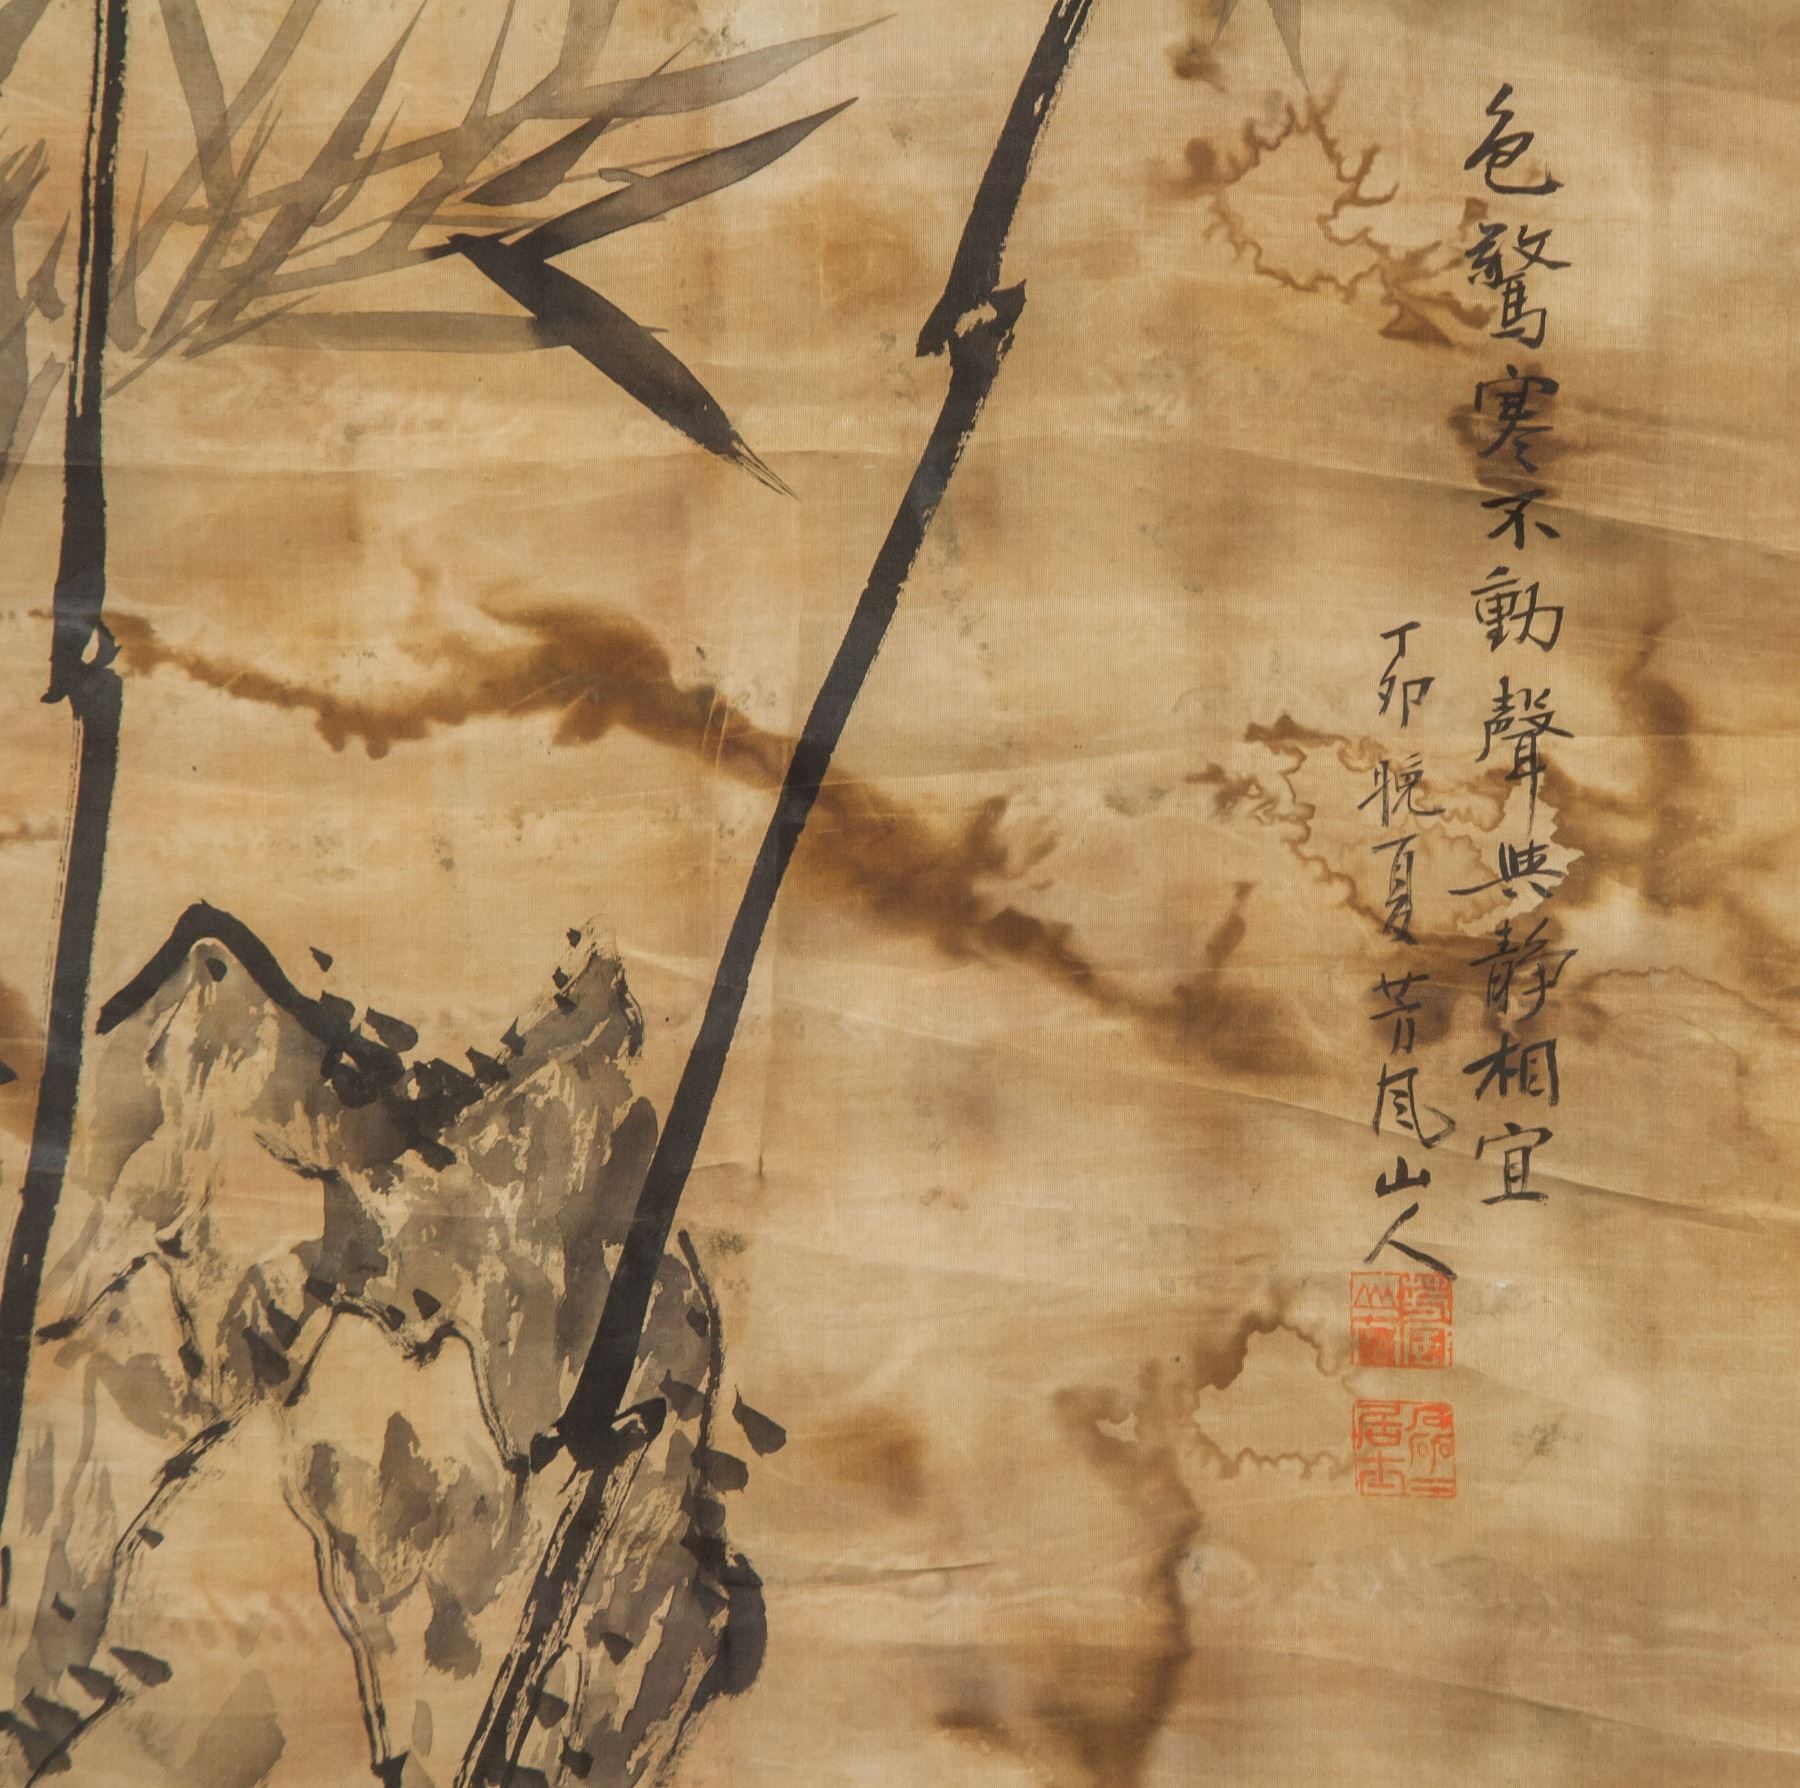 色驚寒不動聲與靜相宜
丁卯晩夏芳風山人
居士